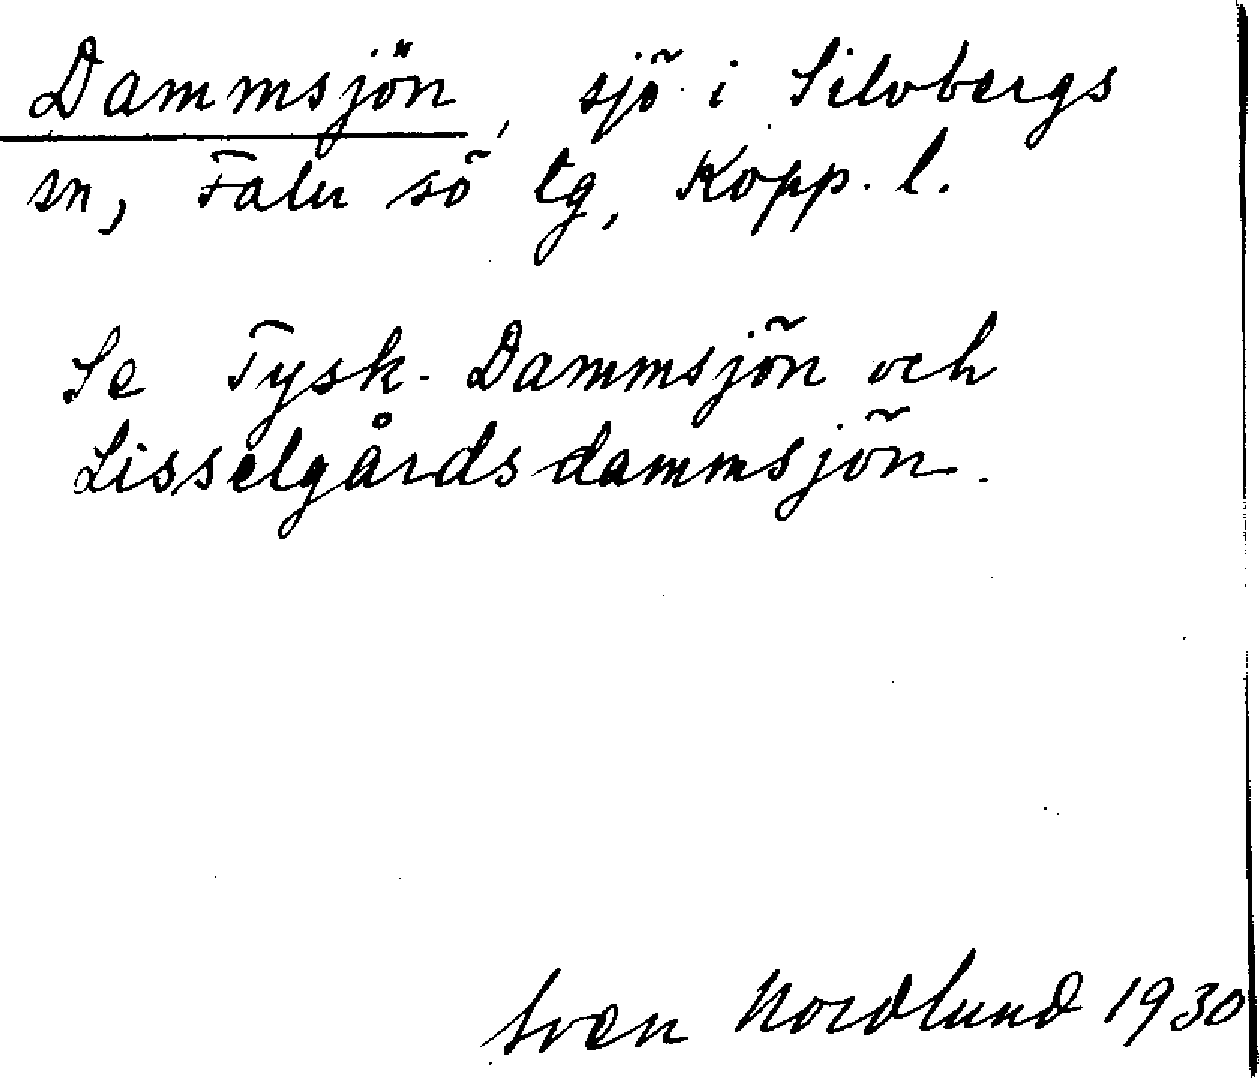 Dammsjön, sjö i Silvbergs
sn, Falu sö tg, Kopp. l.
Se Tysk-Dammsjön och
Lisselgårdsdammsjön.
Sven Nordlund 1930